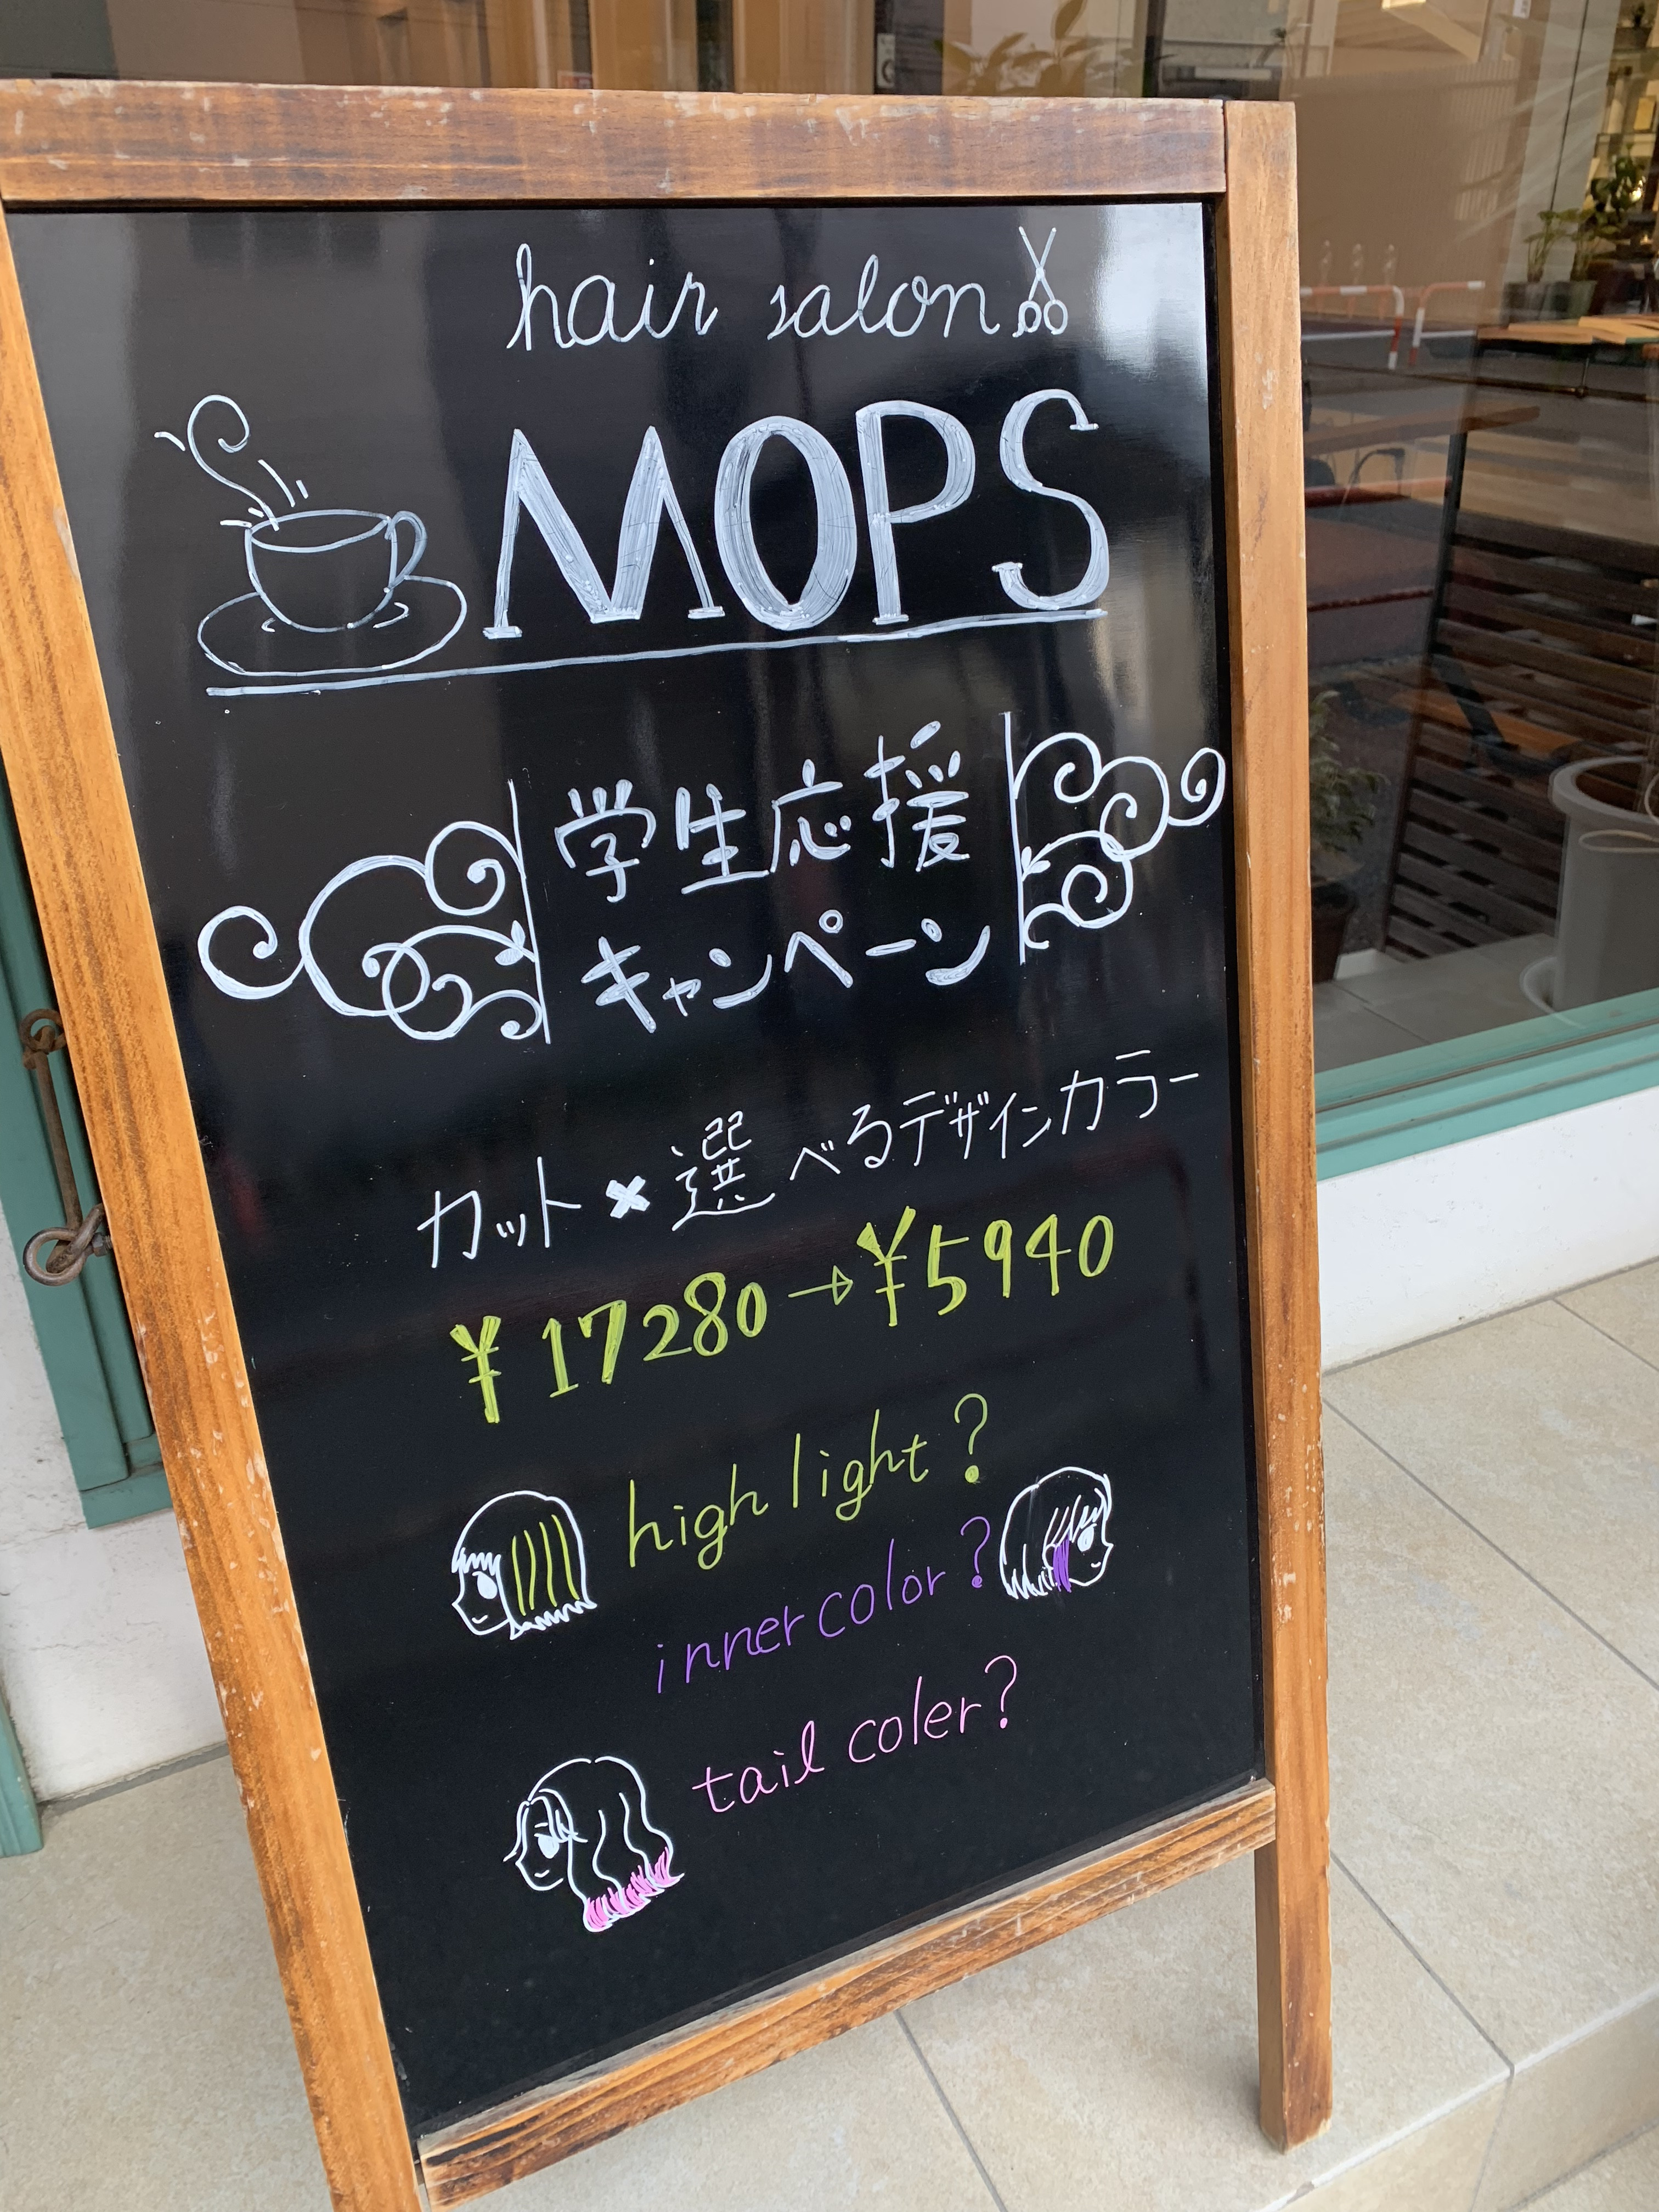 hair salon
MOPS
学生応援
キャンペーン
カット×選べるデザインカラー
¥17280→¥5940
high light?
inner color?
tail coler?